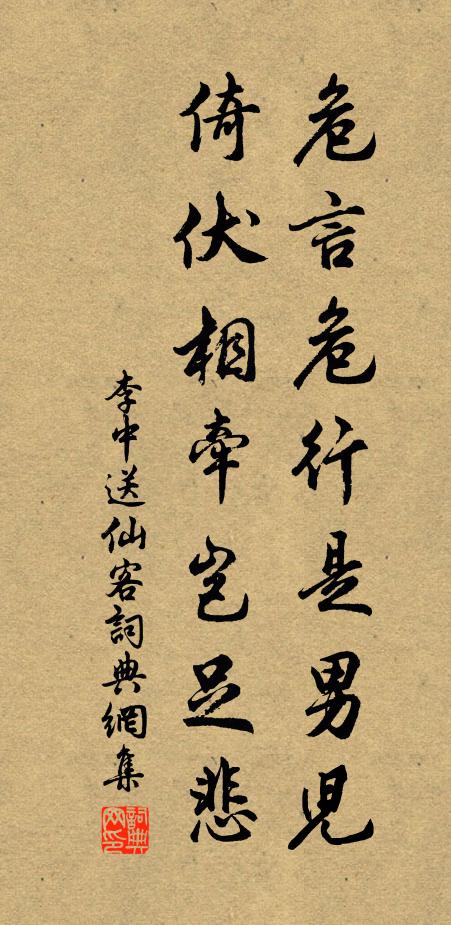 危言危行是男児
倚伏相牽岂足悲
李中送仙客詞典網集
詞典网印